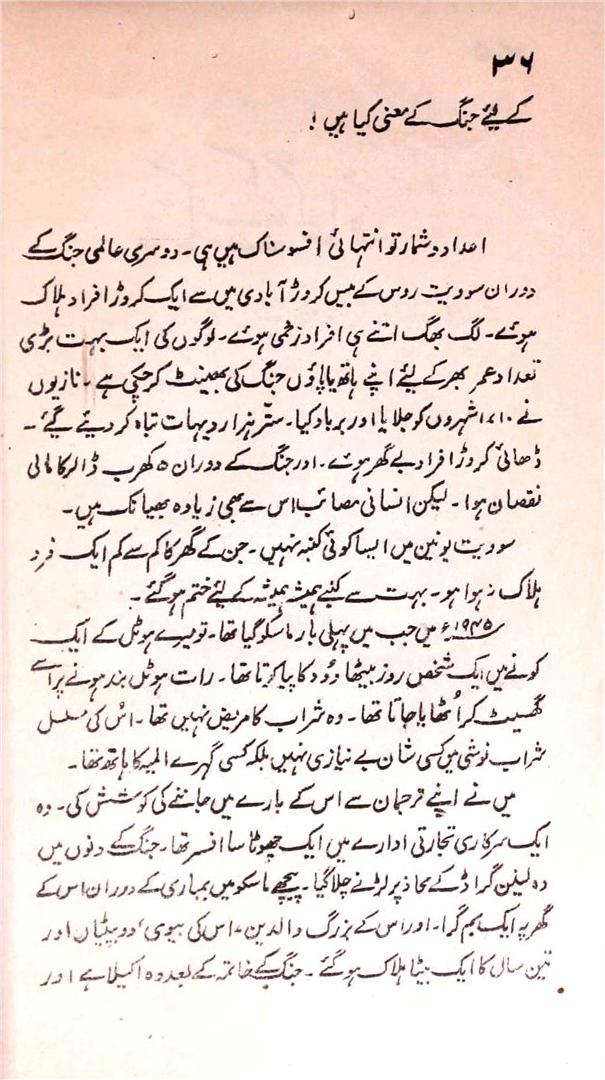 ۳۶
کے لئے جنگ کے معنی کیا ہیں!
اعداد و شمار تو انتہائی افسوسناک ہیں ہی۔ دوسری عالمی جنگ کے
دوران سوویت روس کے بیس کروڑ آبادی میں سے ایک کروڑ افراد ہلاک
ہوئے۔ لگ بھگ اتنے ہی افراد زخمی ہوئے۔ لوگوں کی ایک بہت بڑی
تعداد عمر بھر کے لئے اپنے ہاتھ یا پاؤں جنگ کی بھینٹ کر چکی ہے۔ نازیوں
نے ۱۷۱۰ شہروں کو جلایا اور برباد کیا۔ ستّر ہزار دیہات تباہ کر دیئے گئے۔
ڈھائی کروڑ افراد بے گھر ہوئے۔ اور جنگ کے دوران ۵ کھرب ڈالر کا مالی
نقصان ہوا۔ لیکن انسانی مصائب اس سے بھی زیادہ بھیانک ہیں۔
سوویت یونین میں ایسا کوئی کنبہ نہیں۔ جن کے گھر کا کم سے کم ایک فرد
ہلاک نہ ہوا ہو۔ بہت سے کنبے ہمیشہ ہمیشہ کے لئے ختم ہو گئے۔
۱۹۴۵ء میں جب میں پہلی بار ماسکو گیا تھا۔ تو میرے ہوٹل کے ایک
کونے میں ایک شخص روز بیٹھا وُودکا پیا کرتا تھا۔ رات ہوٹل بند ہونے پر اسے
گھسیٹ کر اُٹھایا جاتا تھا۔ وہ شراب کا مریض نہیں تھا۔ اُس کی مسلسل
شراب نوشی میں کسی شان بے نیازی نہیں بلکہ کسی گہرے المیہ کا ہاتھ تھا۔
میں نے اپنے ترجمان سے اس کے بارے میں جاننے کی کوشش کی۔ وہ
ایک سرکاری تجارتی ادارے میں ایک چھوٹا سا افسر تھا۔ جنگ کے دنوں میں
وہ لینن گراڈ کے محاذ پر لڑنے چلا گیا۔ پیچھے ماسکو میں بمباری کے دوران اس کے
گھر پہ ایک بم گرا۔ اور اس کے بزرگ والدین، اس کی بیوی، دو بیٹیاں اور
تین سال کا ایک بیٹا ہلاک ہو گئے۔ جنگ کے خاتمہ کے بعد وہ اکیلا ہے اور